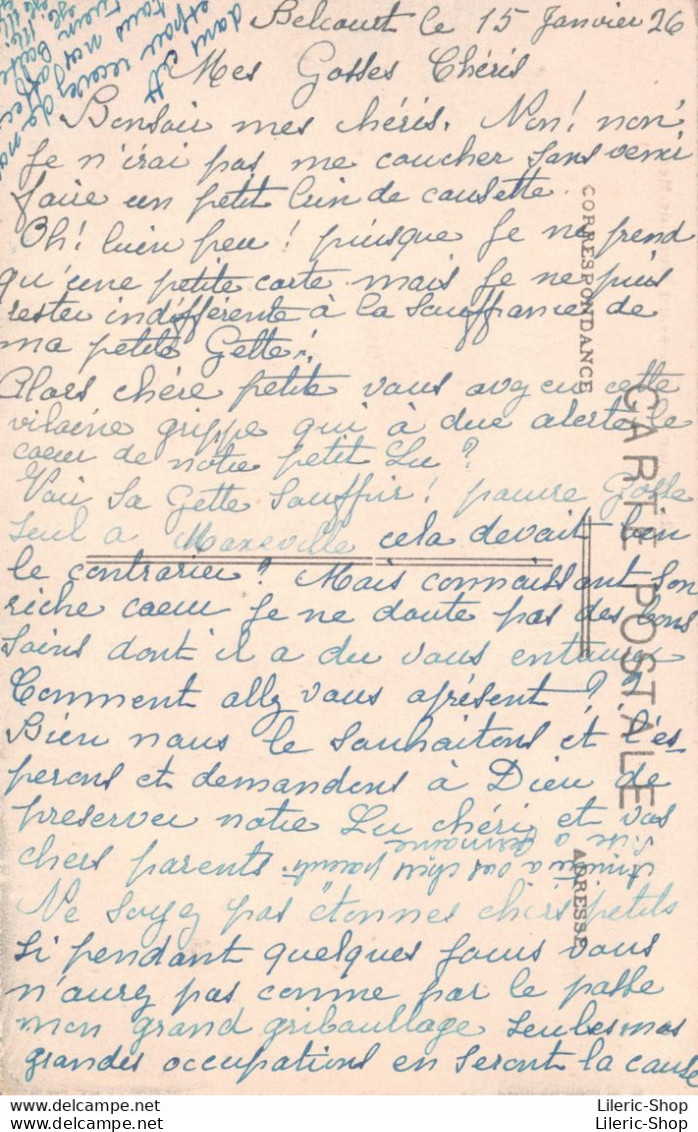 Belcourt le 15 Janvier 26
Mes Gosses Chéris
Bonsoir mes chéris. Non! non!
Je n'irai pas me coucher sans venir
faire un petit brin de causette.
Oh! bien peu! puisque je ne prend
qu'une petite carte mais je ne puis
rester indifférente à la souffrance de
ma petite Gette!
Alors chère petite vous avez eu cette
vilaine grippe qui à due alerter le
coeur de notre petit Lu?
Voir sa Gette souffrir! pauvre Gosse
seul a Maxeville cela devait bien
le contrarier? Mais connaissant son
riche coeur je ne doute pas des bons
soins dont il a du vous entourer
Comment allez vous aprésent??
Bien nous le souhaitons et l'es-
perons et demandons à Dieu de
preserver notre Lu chéri et vos
chers parents.
Amitié a vos chers parents
Ne soyez pas étonnés chers petits
si pendant quelques jours vous
n'aurez pas comme par le passe
mon grand gribouillage seules mes
grandes occupations en seront la cause
dans cet
espoir recevez
tous nos
CORRESPONDANCE
CARTE POSTALE
ADRESSE
Lileric-Shop
Lileric-Shop
Lileric-Shop
Lileric-Shop